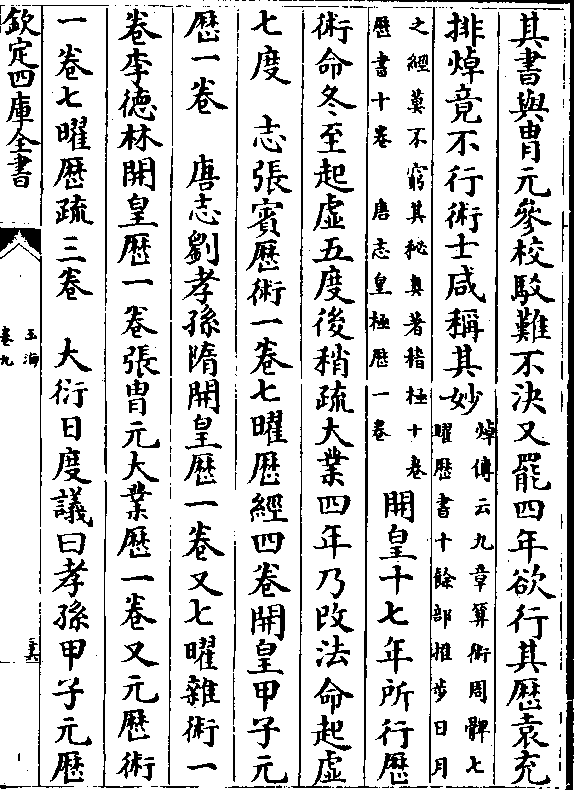 其書與胄元參校駁難不決又罷四年欲行其厯袁充
排焯竟不行術士咸稱其妙
焯傳云九章算術周髀七
曜厯書十餘部推步日月
之經莫不窮其秘奥著稽極十卷
厯書十卷 唐志皇極厯一卷
開皇十七年所行厯
術命冬至起虛五度後稍疏大業四年乃改法命起虛
七度 志張賓厯術一卷七曜厯經四卷開皇甲子元
厯一卷 唐志劉孝孫隋開皇厯一卷又七曜雜術一
卷李德林開皇厯一卷張胄元大業厯一卷又元厯術
一卷七曜厯疏三卷 大衍日度議曰孝孫甲子元厯
欽定四庫全書
玉海
卷九